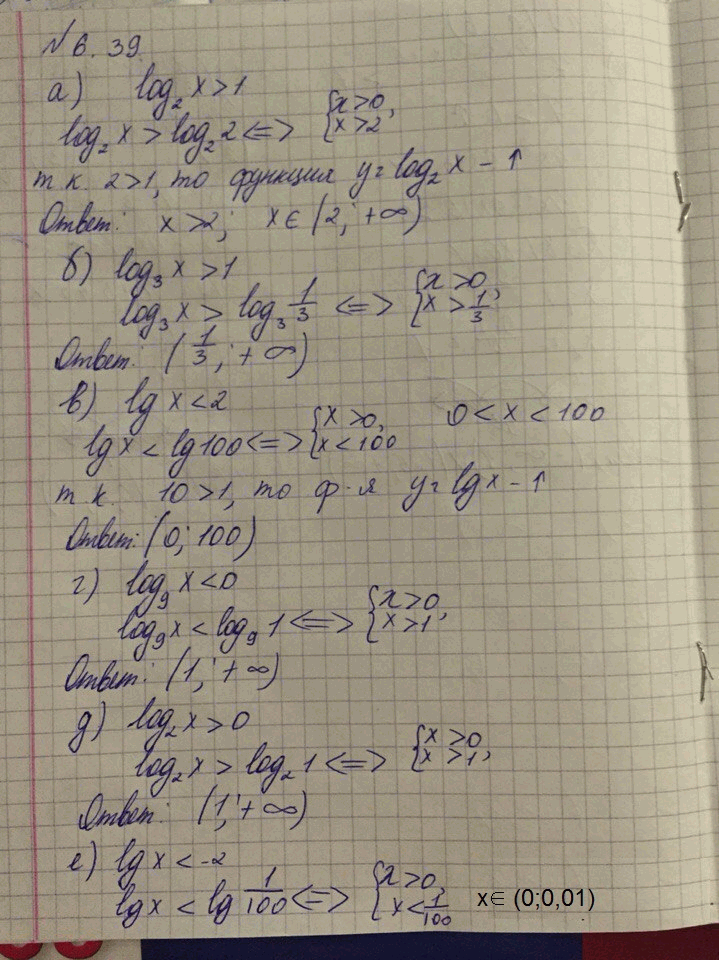 №6.39
а) log₂ x > 1
log₂ x > log₂ 2 <=> { x > 0, x > 2
т к. 2>1, то функция y = log₂ x - ↑
Ответ: x > 2; x ∈ (2; +∞)
б) log₃ x > 1
log₃ x > log₃ 1/3 <=> { x > 0, x > 1/3
Ответ: (1/3; +∞)
в) lg x < 2
lg x < lg 100 <=> { x > 0, x < 100 0 < x < 100
т к 10>1, то ф-я y = lg x - ↑
Ответ: (0; 100)
г) log₉ x < 0
log₉ x < log₉ 1 <=> { x > 0, x > 1
Ответ: (1; +∞)
д) log₂ x > 0
log₂ x > log₂ 1 <=> { x > 0 x > 1,
Ответ: (1; +∞)
е) lg x < -2
lg x < lg 1/100 <=> { x > 0, x < 1/100 x∈ (0;0,01)